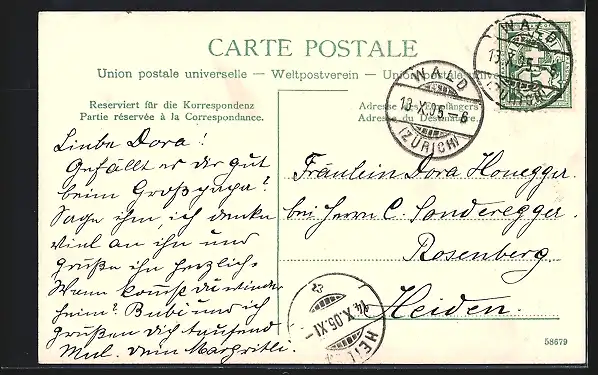 CARTE POSTALE
Union postale universelle — Weltpostverein — Union postale
WALD
13.X.05
WALD
13.X.05-6
(ZÜRICH)
Reserviert für die Korrespondenz
Partie réservée à la Correspondance.
Adresse des Empfängers
Adresse du Destinataire.
Liebe Dora!
Gefällt es dir gut
beim Grosspapa?
Sage ihm, ich denke
viel an ihn und
grüße ihn herzlich.
Wann kommst du wieder
heim? Bubi und ich
grüßen dich tausend
Mal. Dein Margritli.
Fräulein Dora Honegger.
bei Herrn C. Sonderegger.
Rosenberg
Heiden.
14.X.05.XI-
HEIDEN
58679